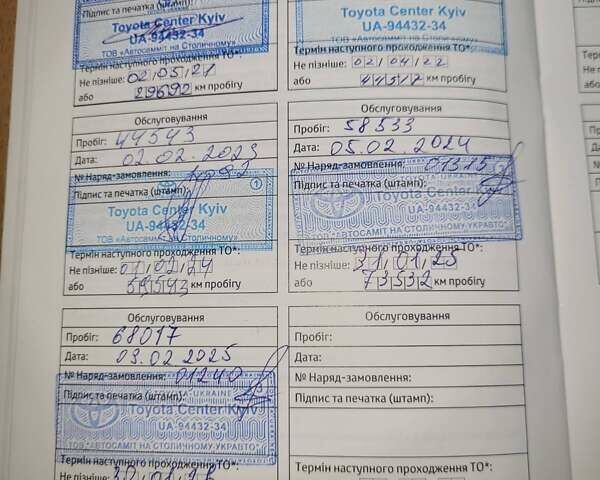 Підпис та печатка (штамп):
Toyota Center Kyiv
UA-94432-34
ТОВ «Автосаміт на Столичному»
Термін наступного проходження ТО*:
Не пізніше: 02.05.21
або 29692 км пробігу
Toyota Center Kyiv
UA-94432-34
ТОВ «Автосаміт на Столичному»
Термін наступного проходження ТО*:
Не пізніше: 02.04.22
або км пробігу
Обслуговування
Пробіг: 44543
Дата: 02.02.2023
№ Наряд-замовлення:
Підпис та печатка (штамп):
Toyota Center Kyiv
UA-94432-34
ТОВ «Автосаміт на Столичному»
Термін наступного проходження ТО*:
Не пізніше: 01.02.24
або 59543 км пробігу
Обслуговування
Пробіг: 58533
Дата: 05.02.2024
№ Наряд-замовлення: 01315
Підпис та печатка (штамп):
Toyota Center Kyiv
UA-94432-34
ТОВ "АВТОСАМІТ НА СТОЛИЧНОМУ-УКРАВТО"
Термін наступного проходження ТО*:
Не пізніше: 31.01.25
або 73532 км пробігу
Обслуговування
Пробіг: 68017
Дата: 03.02.2025
№ Наряд-замовлення: 01240
Підпис та печатка (штамп):
Toyota Center Kyiv
UA-94432-34
ТОВ "АВТОСАМІТ НА СТОЛИЧНОМУ-УКРАВТО"
Термін наступного проходження ТО*:
Не пізніше:
Обслуговування
Пробіг:
Дата:
№ Наряд-замовлення:
Підпис та печатка (штамп):
Термін наступного проходження ТО*:
Не пізніше: